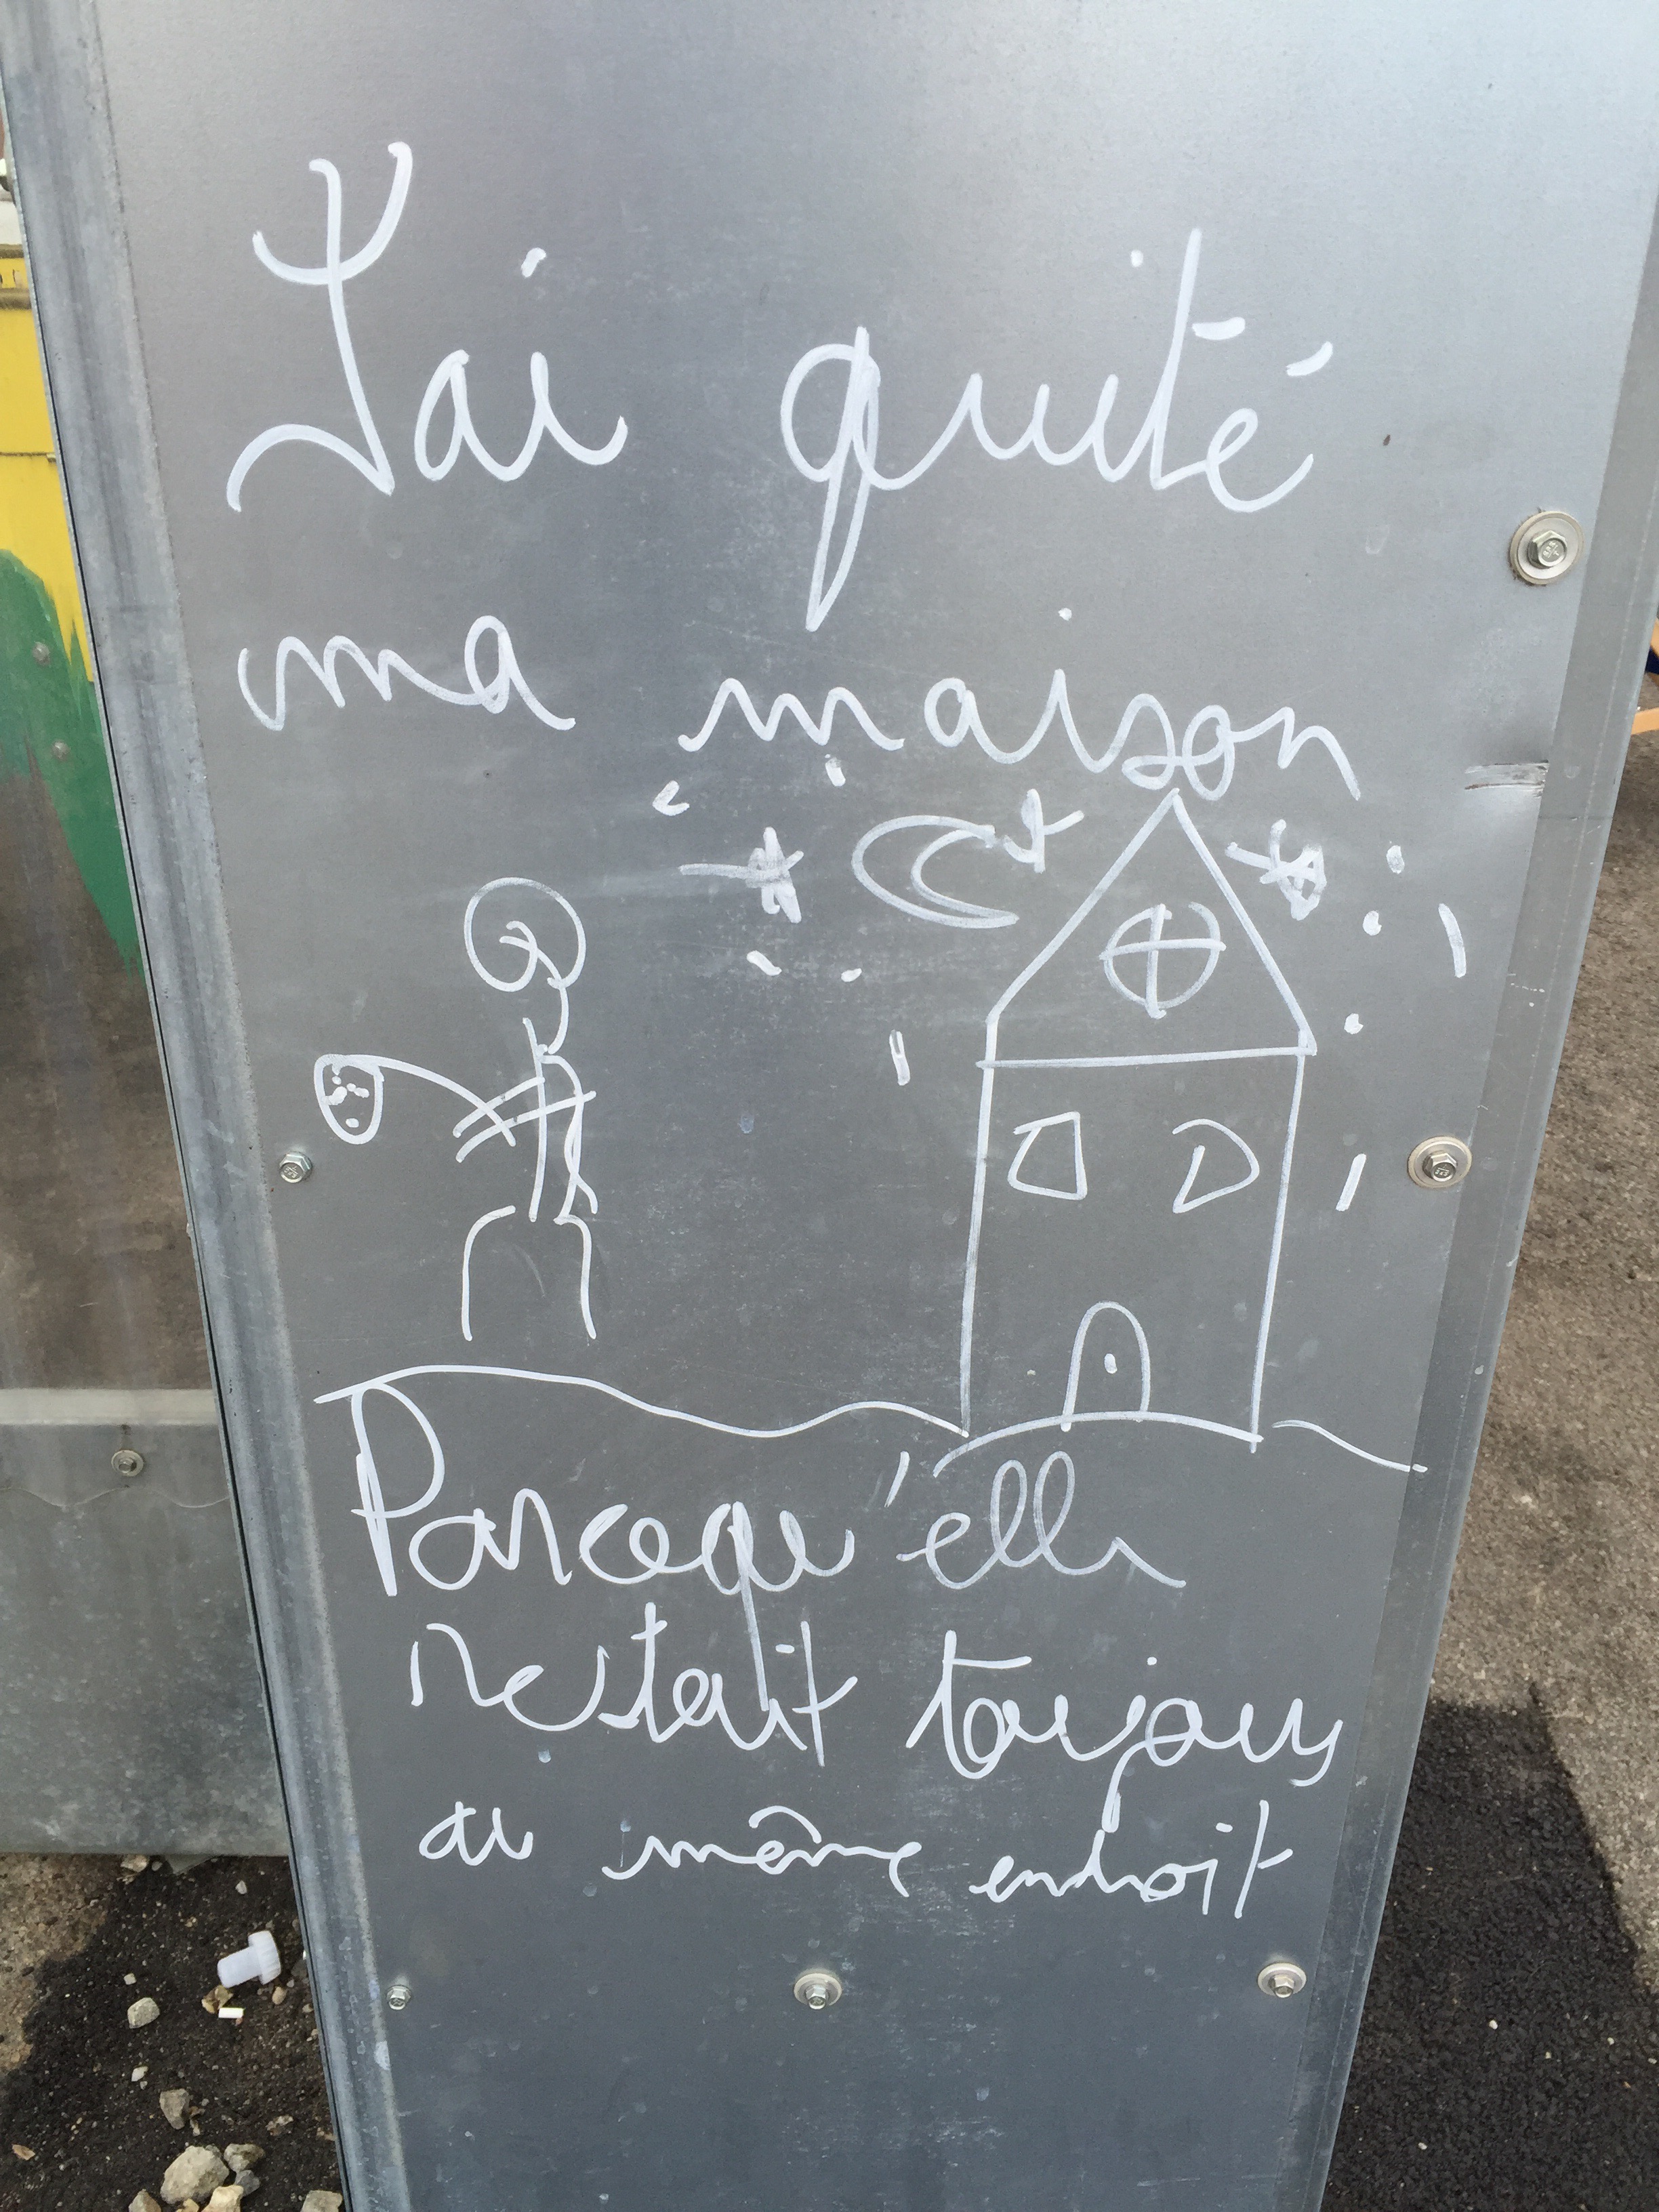 J'ai quité
ma maison
Parcequ'elle
restait toujours
au même endroit